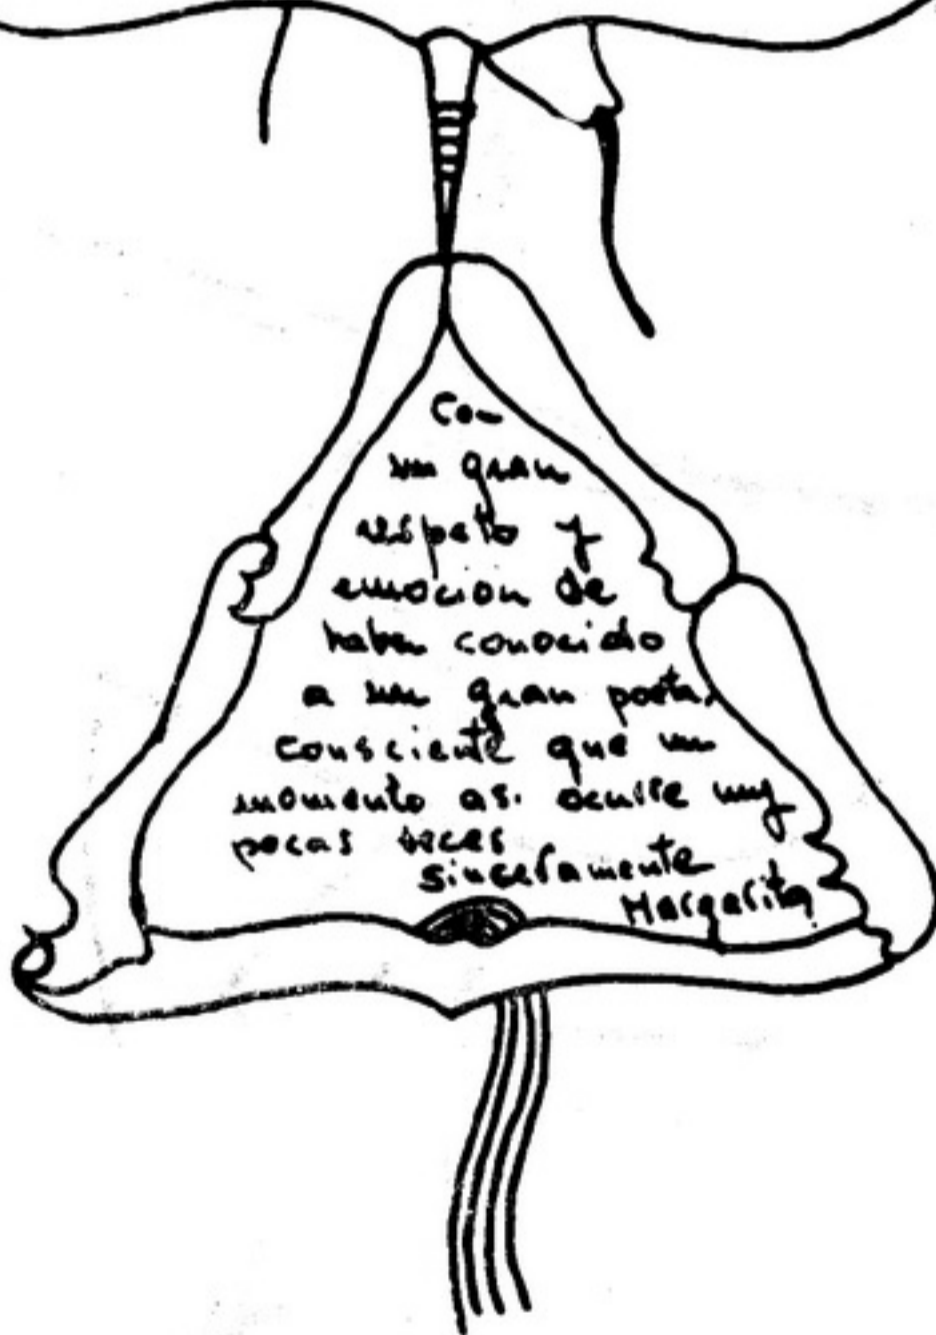 Con
un gran
respeto y
emocion de
haber conocido
a un gran poeta,
consciente que un
momento asi ocurre muy
pocas veces
sinceramente
Margarita